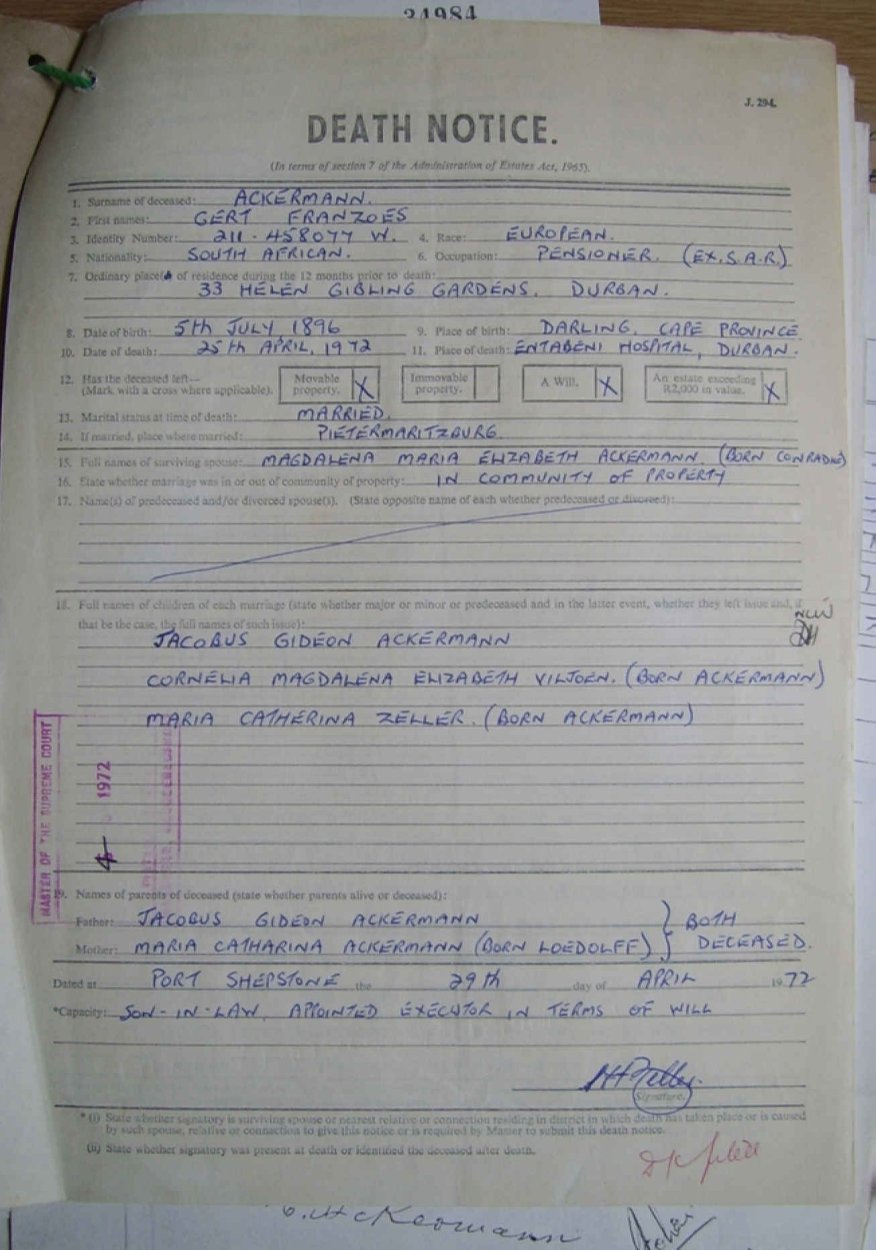 21984
J. 294.
DEATH NOTICE.
(In terms of section 7 of the Administration of Estates Act, 1965).
1. Surname of deceased: ACKERMANN.
2. First names: GERT FRANZOES
3. Identity Number: 211-458077 W. 4. Race: EUROPEAN.
5. Nationality: SOUTH AFRICAN. 6. Occupation: PENSIONER. (EX. S.A.R.)
7. Ordinary place of residence during the 12 months prior to death:
33 HELEN GIBLING GARDENS. DURBAN.
8. Date of birth: 5th JULY 1896 9. Place of birth: DARLING, CAPE PROVINCE
10. Date of death: 25th APRIL, 1972 11. Place of death: ENTABENI HOSPITAL, DURBAN.
12. Has the deceased left— Movable Immovable A Will. X An estate exceeding
(Mark with a cross where applicable). property. X property. R2,000 in value. X
13. Marital status at time of death: MARRIED.
14. If married, place where married: PIETERMARITZBURG
15. Full names of surviving spouse: MAGDALENA MARIA ELIZABETH ACKERMANN. (BORN CONRADIE)
16. State whether marriage was in or out of community of property: IN COMMUNITY OF PROPERTY
17. Name(s) of predeceased and/or divorced spouse(s). (State opposite name of each whether predeceased or divorced):
18. Full names of children of each marriage (state whether major or minor or predeceased and in the latter event, whether they left issue and, if
that be the case, the full names of such issue):
JACOBUS GIDEON ACKERMANN
CORNELIA MAGDALENA ELIZABETH VILJOEN. (BORN ACKERMANN)
MARIA CATHERINA ZELLER. (BORN ACKERMANN)
MASTER OF THE SUPREME COURT
1972
19. Names of parents of deceased (state whether parents alive or deceased):
Father: JACOBUS GIDEON ACKERMANN } BOTH
Mother: MARIA CATHARINA ACKERMANN (BORN LOEDOLFF) } DECEASED.
Dated at PORT SHEPSTONE the 29th day of APRIL 1972
*Capacity: SON-IN-LAW, APPOINTED EXECUTOR IN TERMS OF WILL
Signature.
* (i) State whether signatory is surviving spouse or nearest relative or connection residing in district in which death has taken place or is caused
by such spouse, relative or connection to give this notice or is required by Master to submit this death notice.
(ii) State whether signatory was present at death or identified the deceased after death.